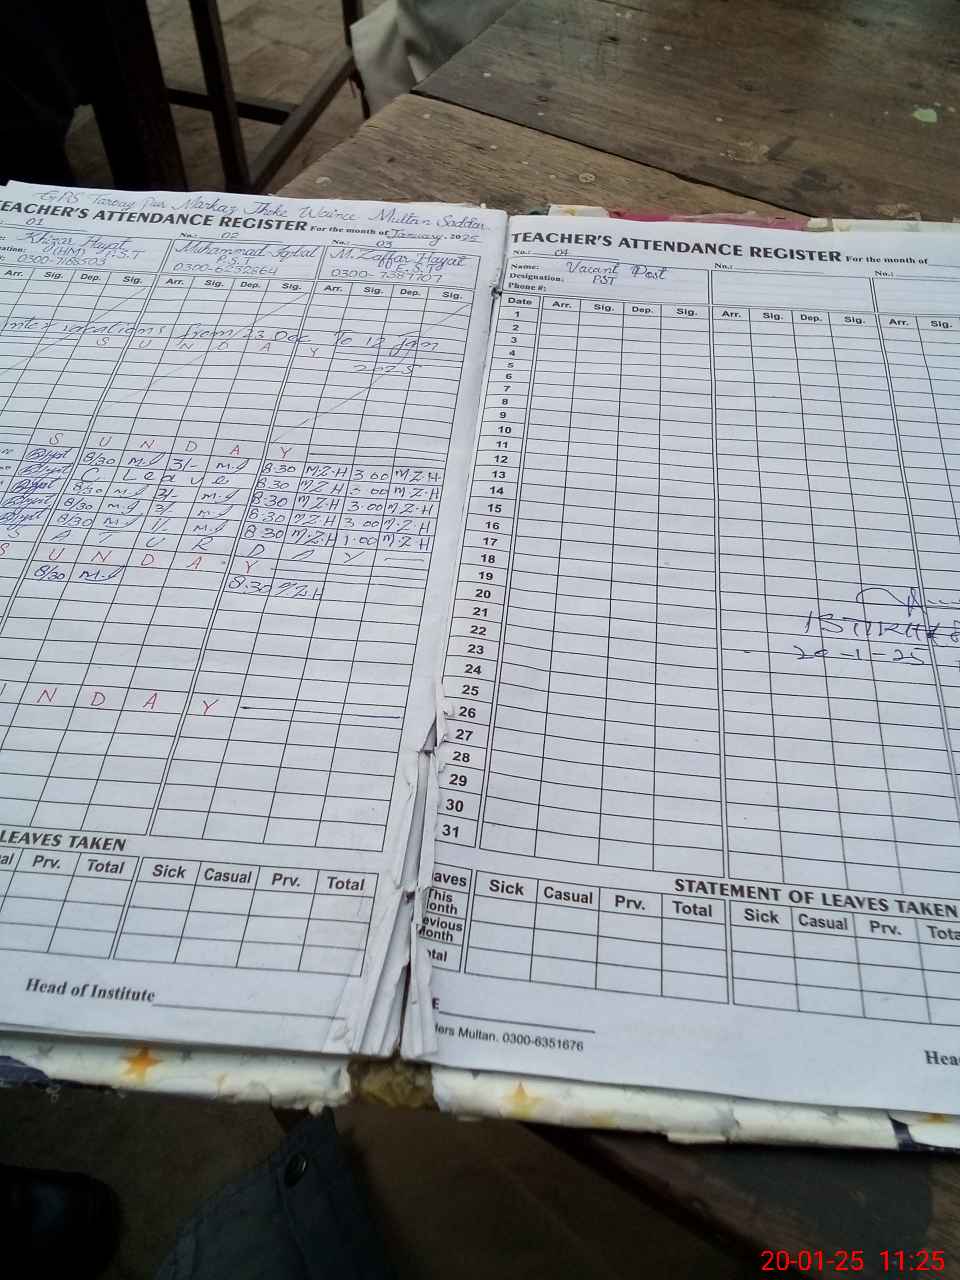 GPS Taroay Pur Markaz Theke Wains Multan Saddar
TEACHER'S ATTENDANCE REGISTER For the month of January. 2025
01 No.: 02 No.: 03
Khizar Hayat Muhammad Iqbal M. Zaffar Hayat
(HM) P.S.T P.S.T E.S.T
0300-7337707
Arr. Sig. Dep. Sig. Arr. Sig. Dep. Sig. Arr. Sig. Dep. Sig.
vacations from 23 Dec To 12 Jan
S U N D A Y
2025
S U N D A Y
8/30 M.I 3/- M.I 8:30 M.Z.H 3.00 M.Z.H
C Leave 8:30 M.Z.H 3.00 M.Z.H
8/30 M.I 3/- M.I 8:30 M.Z.H 3.00 M.Z.H
8/30 M.I 3/- M.I 8:30 M.Z.H 3.00 M.Z.H
8/30 M.I 1/- M.I 8:30 M.Z.H 1.00 M.Z.H
S A T U R D A Y
S U N D A Y
8/30 M.I 8:30 M.Z.H
U N D A Y
LEAVES TAKEN
Prv. Total Sick Casual Prv. Total
Head of Institute
TEACHER'S ATTENDANCE REGISTER For the month of
No.: 04 No.: No.:
Name: Vacant Post
Designation: PST
Phone #:
Date Arr. Sig. Dep. Sig. Arr. Sig. Dep. Sig. Arr. Sig.
1
2
3
4
5
6
7
8
9
10
11
12
13
14
15
16
17
18
19
20
21
22
23
24
25
26
27
28
29
30
31
20-1-25
STATEMENT OF LEAVES TAKEN
aves Sick Casual Prv. Total Sick Casual Prv. Tota
This Month
evious Month
otal
E
ders Multan. 0300-6351676
Hea
20-01-25 11:25